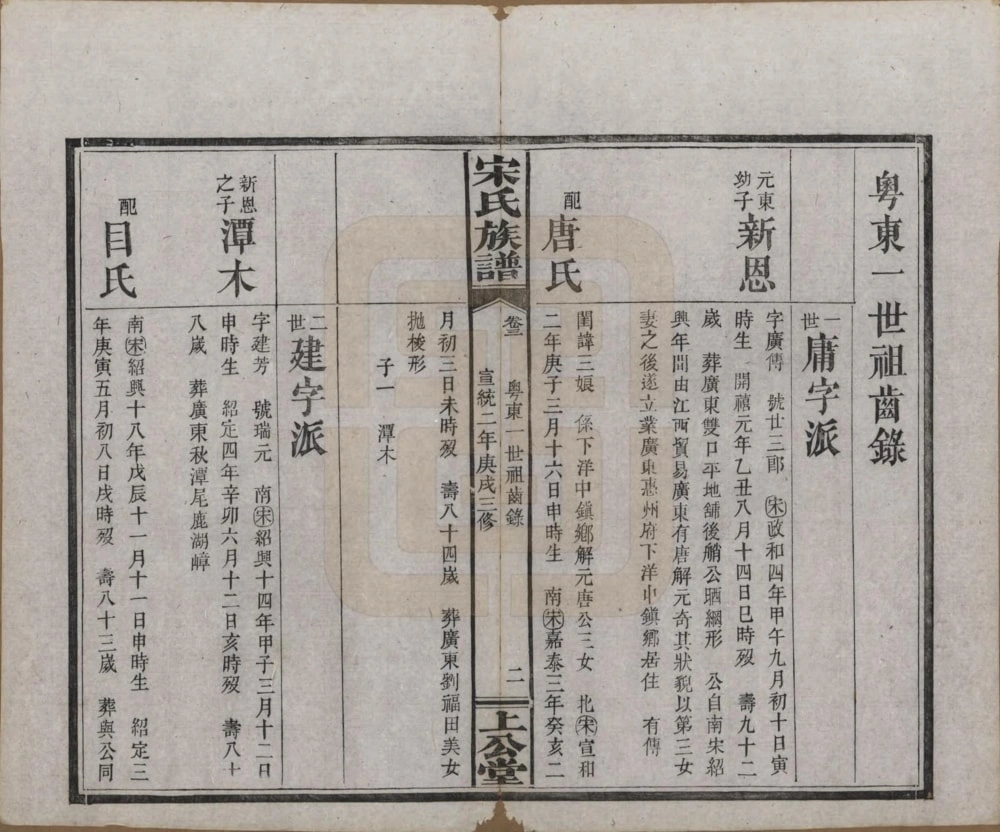 粵東一世祖齒錄
一世 庸字派
元東幼子 新恩
字廣傳 號廿三郎 宋政和四年甲午九月初十日寅
時生 開禧元年乙丑八月十四日巳時歿 壽九十二
歲 葬廣東雙口平地舖後艄公晒網形 公自南宋紹
興年間由江西貿易廣東有唐解元奇其狀貌以第三女
妻之後遂立業廣東惠州府下洋中鎮鄉居住 有傳
配 唐氏
閨諱三娘 係下洋中鎮鄉解元唐公三女 北宋宣和
二年庚子三月十六日申時生 南宋嘉泰三年癸亥二
宋氏族譜 卷三 粵東一世祖齒錄 宣統二年庚戌三修 二 上公堂
月初三日未時歿 壽八十四歲 葬廣東劉福田美女
拋梭形
子一 潭木
二世 建字派
新恩之子 潭木
字建芳 號瑞元 南宋紹興十四年甲子三月十二日
申時生 紹定四年辛卯六月十二日亥時歿 壽八十
八歲 葬廣東秋潭尾鹿湖嶂
配 目氏
南宋紹興十八年戊辰十一月十一日申時生 紹定三
年庚寅五月初八日戌時歿 壽八十三歲 葬與公同